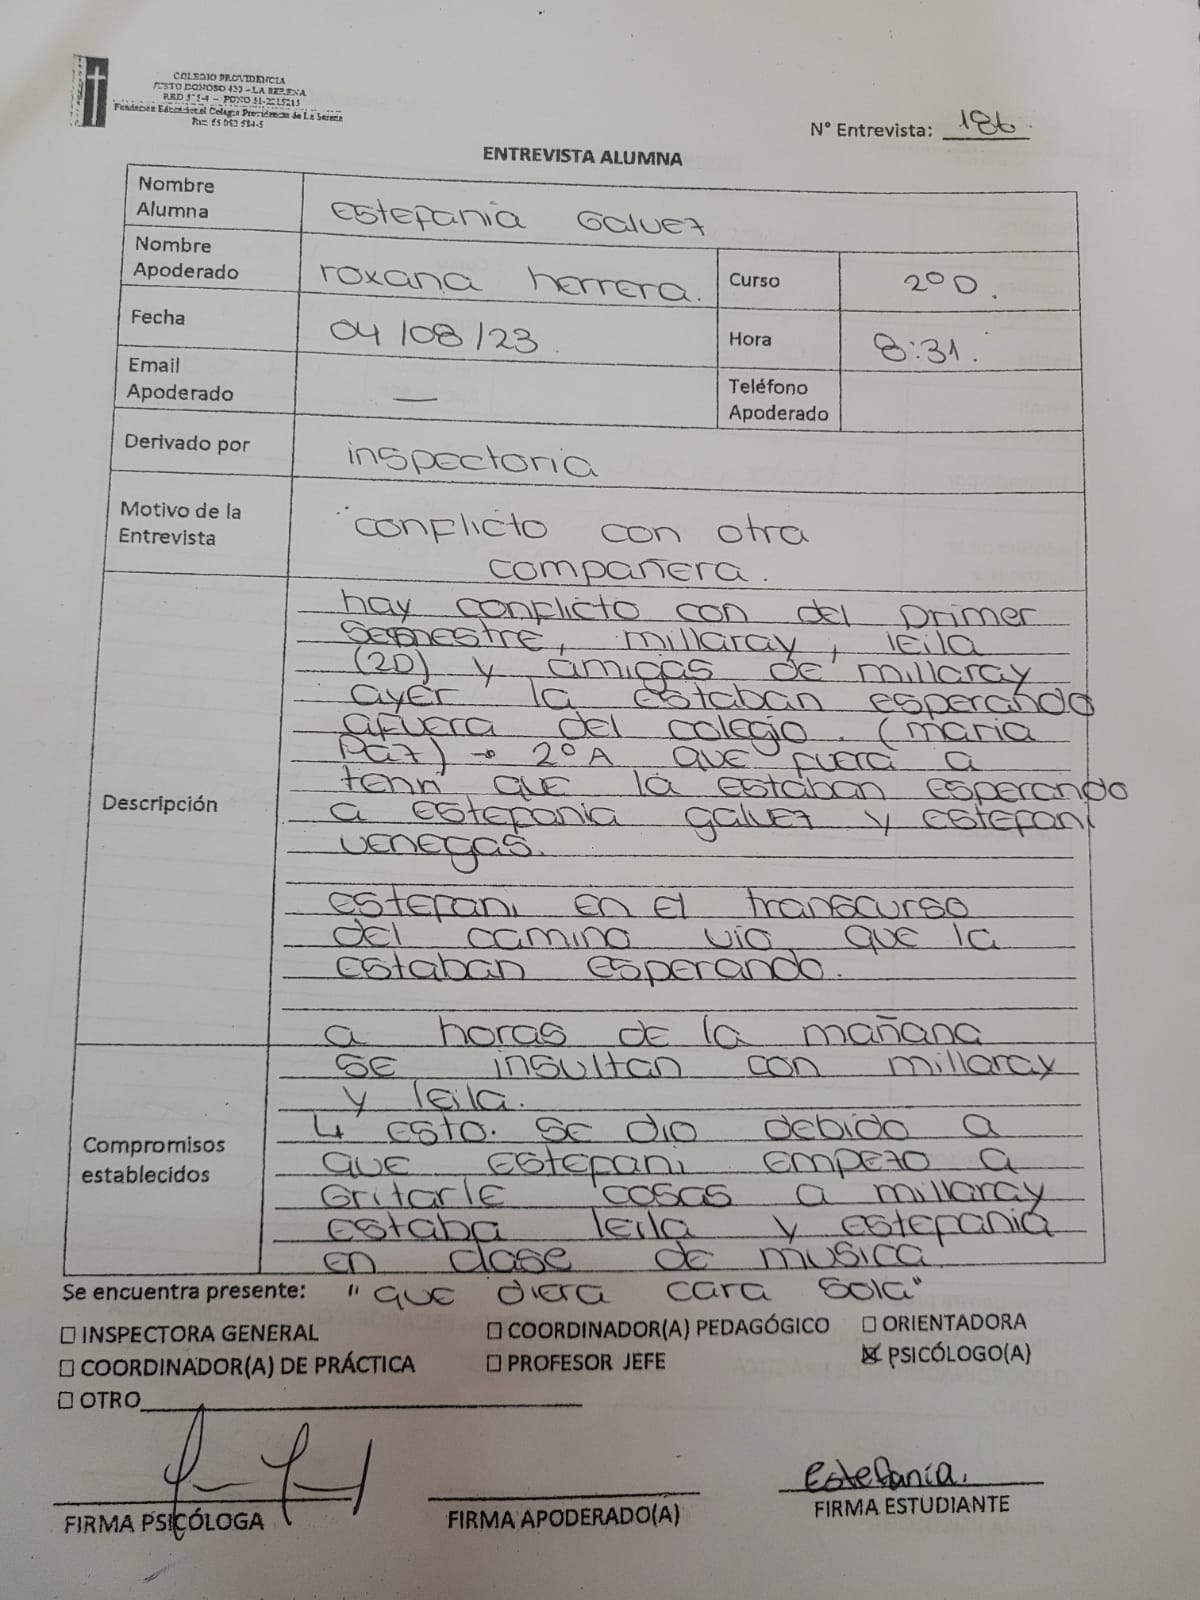 COLEGIO PROVIDENCIA
JUSTO DONOSO 420 - LA SERENA
Fundación Educacional Colegio Providencia de La Serena
N° Entrevista: 186.
ENTREVISTA ALUMNA
Nombre Alumna Estefania Galvez
Nombre Apoderado roxana herrera. Curso 2°D.
Fecha 04/08/23. Hora 8:31.
Email Apoderado — Teléfono Apoderado
Derivado por inspectoria
Motivo de la Entrevista conflicto con otra
compañera.
Descripción
hay conflicto con del primer
semestre, millaray, leila
(2D) y amigas de millaray
ayer la estaban esperando
afuera del colegio. (maria
Paz) → 2°A que fuera a
que la estaban esperando
a estefania galvez y estefani
venegas.
estefani en el transcurso
del camino vio que la
estaban esperando.
a horas de la mañana
Compromisos establecidos
se insultan con millaray
y leila.
↳ esto. se dio debido a
que estefani empezo a
gritarle cosas a millaray
estaba leila y estefania
en clase de musica.
Se encuentra presente: "que diera cara sola"
☐ INSPECTORA GENERAL ☐ COORDINADOR(A) PEDAGÓGICO ☐ ORIENTADORA
☐ COORDINADOR(A) DE PRÁCTICA ☐ PROFESOR JEFE ☒ PSICÓLOGO(A)
☐ OTRO
Estefania.
FIRMA PSICÓLOGA FIRMA APODERADO(A) FIRMA ESTUDIANTE